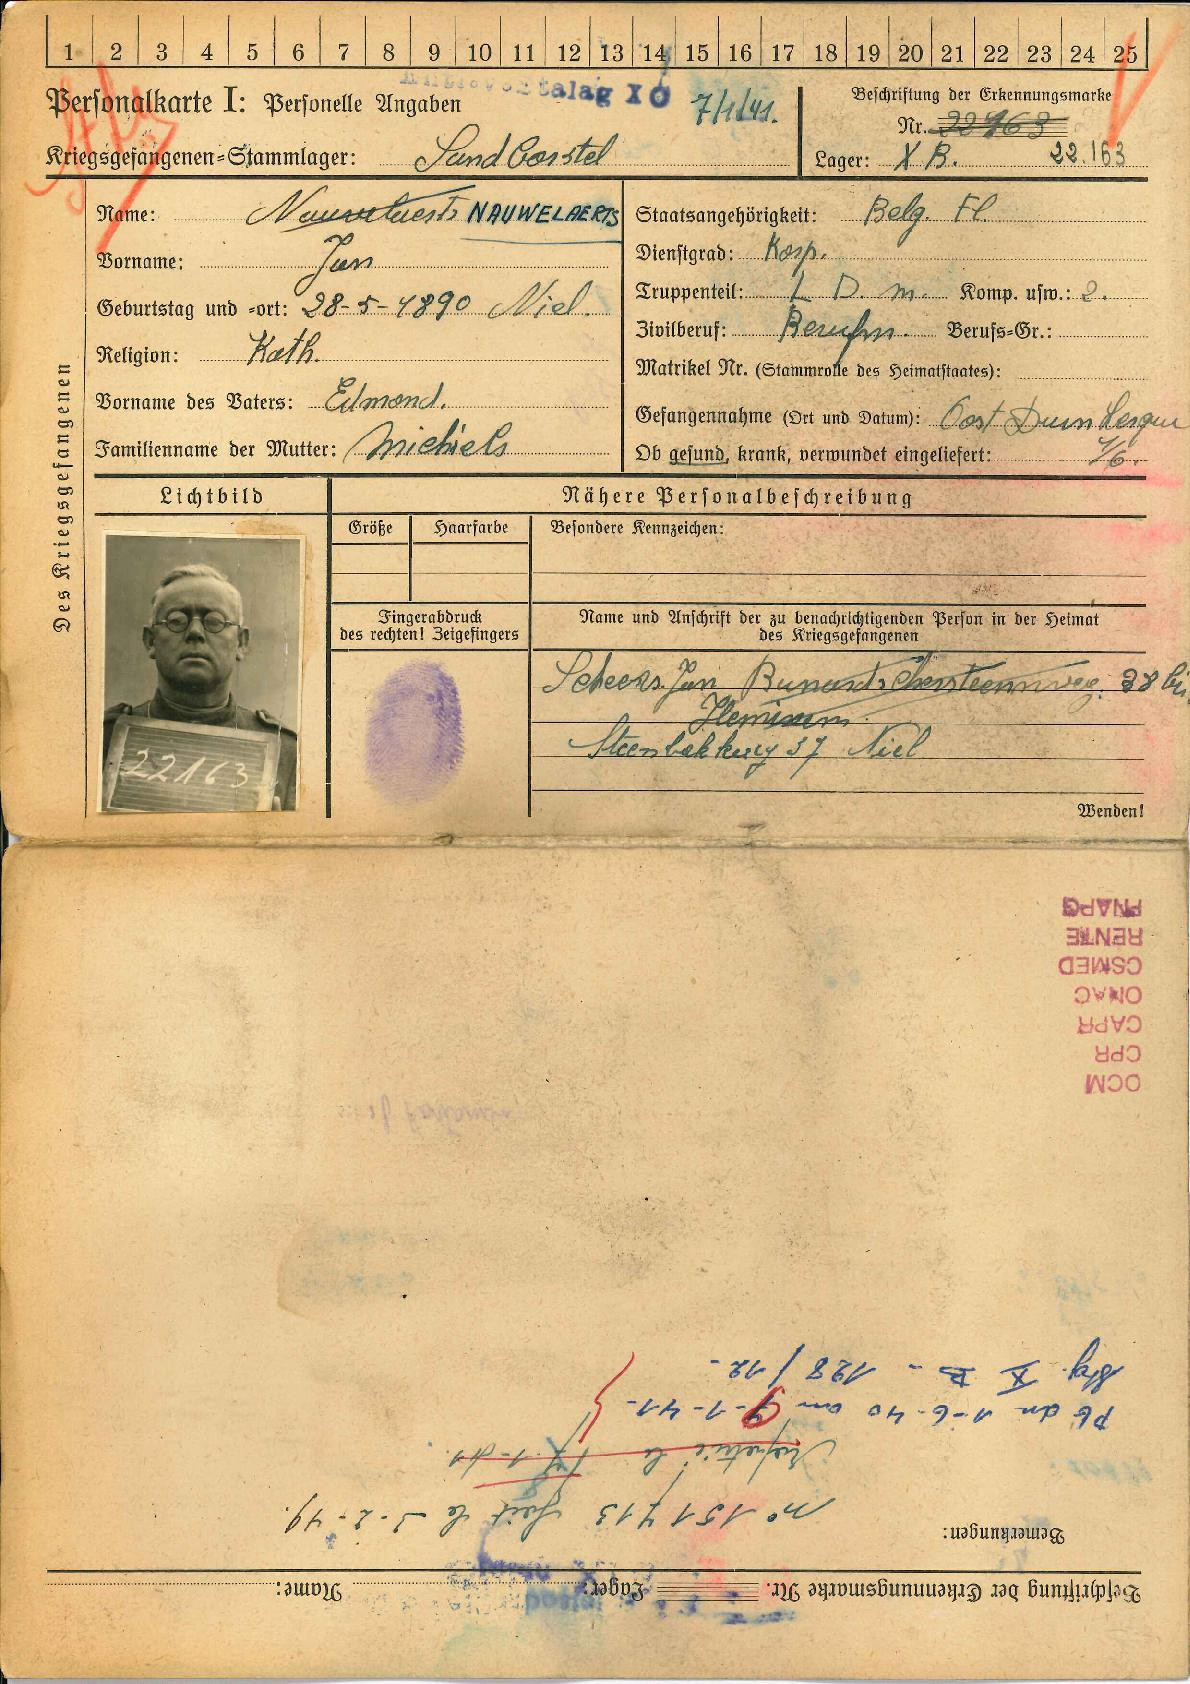 1 2 3 4 5 6 7 8 9 10 11 12 13 14 15 16 17 18 19 20 21 22 23 24 25
Stalag X
7/1/41.
Personalkarte I: Personelle Angaben
Beschriftung der Erkennungsmarke
Nr. 22163
Kriegsgefangenen-Stammlager: Sandbostel
Lager: X B. 22.163
Des Kriegsgefangenen
Name: NAUWELAERTS
Vorname: Jan
Geburtstag und -ort: 28-5-1890 Niel.
Religion: Kath.
Vorname des Vaters: Edmond.
Familienname der Mutter: Michiels
Staatsangehörigkeit: Belg. Fl.
Dienstgrad: Korp.
Truppenteil: L D. m. Komp. usw.: 2.
Zivilberuf: Berufsm. Berufs-Gr.:
Matrikel Nr. (Stammrolle des Heimatstaates):
Gefangennahme (Ort und Datum): Oost
Ob gesund, krank, verwundet eingeliefert:
Lichtbild
22163
Nähere Personalbeschreibung
Größe
Haarfarbe
Besondere Kennzeichen:
Fingerabdruck
des rechten! Zeigefingers
Name und Anschrift der zu benachrichtigenden Person in der Heimat
des Kriegsgefangenen
Scheers Jan
Hemixem.
37 Niel
Wenden!
Beschriftung der Erkennungsmarke Nr. Lager: Name:
Bemerkungen:
n° 151713 fait le 3-2-49.
le
1-6-40 am 9-1-41-
X B - 128/12-
DCM
CPR
CAPR
ONAC
CSMED
RENTE
PNAPG